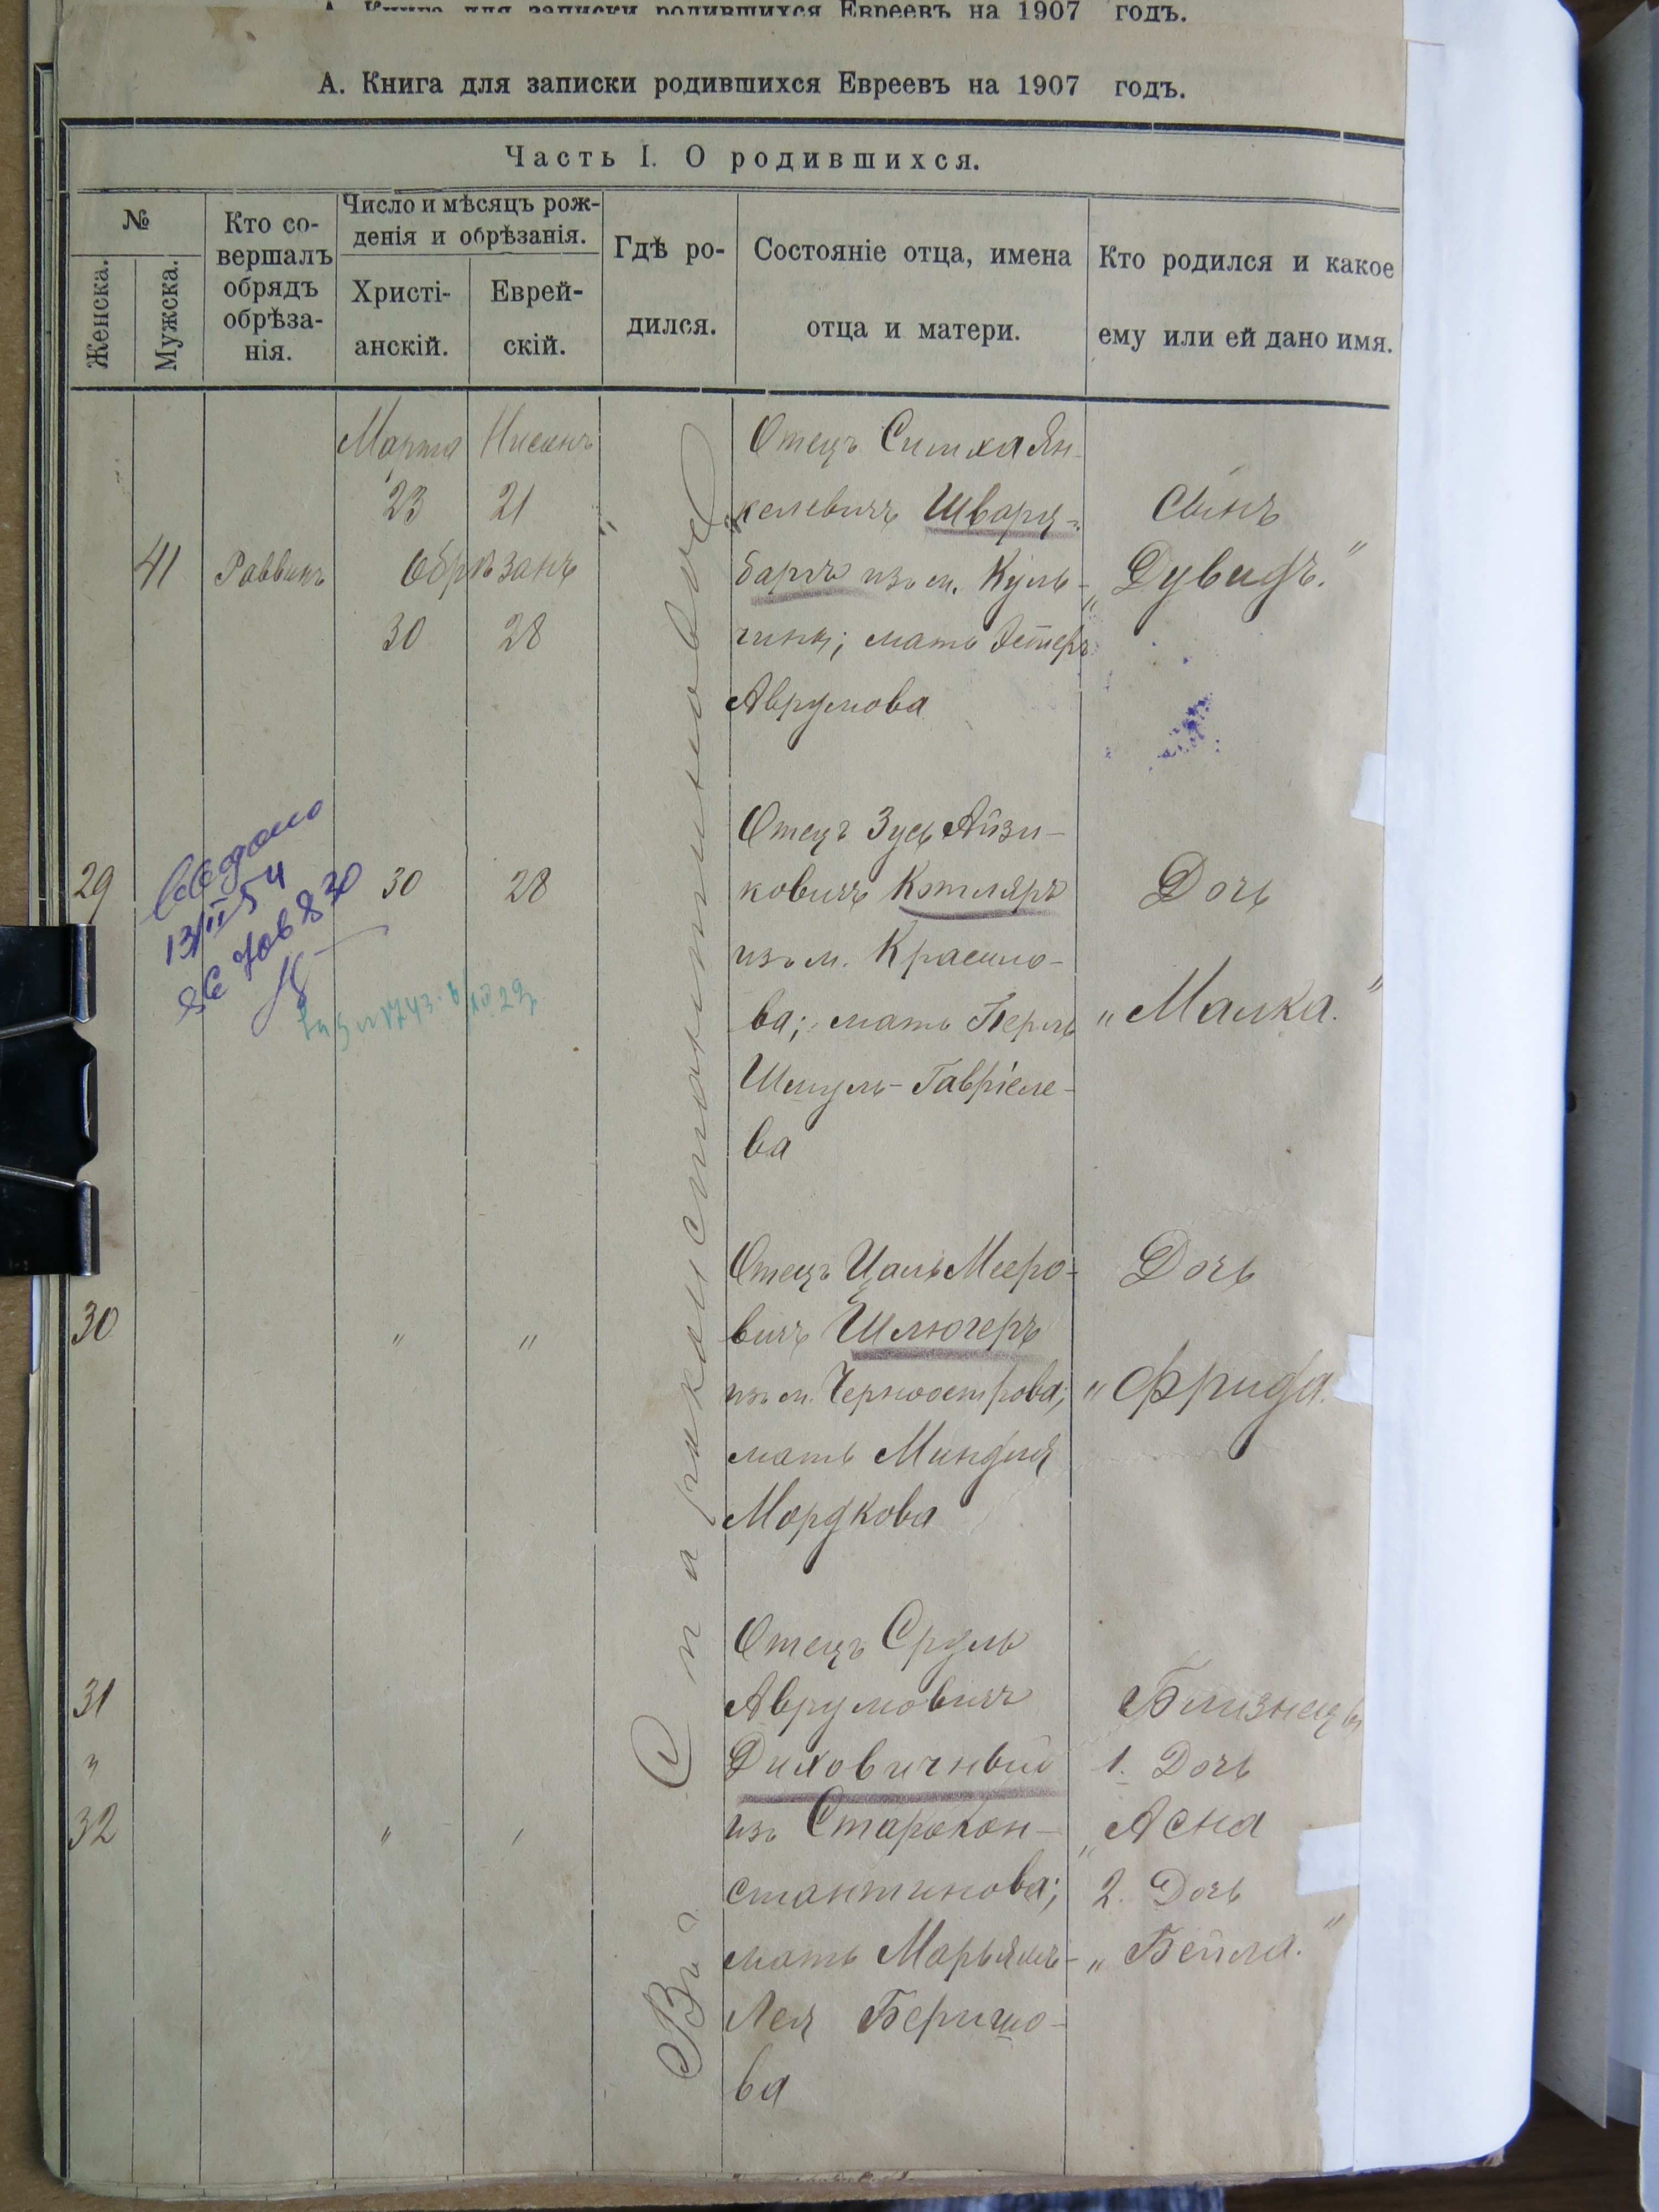 А. Книга для записки родившихся Евреевъ на 1907 годъ.
А. Книга для записки родившихся Евреевъ на 1907 годъ.
Часть I. О родившихся.
№
Женска.
Мужска.
Кто со-
вершалъ
обрядъ
обрѣза-
нія.
Число и мѣсяцъ рож-
денія и обрѣзанія.
Христі-
анскій.
Еврей-
скій.
Гдѣ ро-
дился.
Состояніе отца, имена
отца и матери.
Кто родился и какое
ему или ей дано имя.
Въ Староконстантиновѣ
41
Раввинъ
Марта Нисанъ
23 21
Обрѣзанъ
30 28
Отецъ Симха Ян-
келевичъ Шварц-
баргъ изъ м. Куль-
чинъ; мать Эстеръ
Аврумова
Сынъ
„Дувидъ."
29
30 28
13/II 54
Отецъ Зусь Айзи-
ковичъ Котляръ
изъ м. Красило-
ва; мать Перль
Шмуль-Гавріеле-
ва
Дочь
„Малка."
30
" "
Отецъ Цаль Мееро-
вичъ Шлюгеръ
изъ м. Черноострова;
мать Миндля
Мордкова
Дочь
„Фрида.
31
"
32
" "
Отецъ Сруль
Аврумовичъ
Диховичный
изъ Старокон-
стантинова;
мать Марьямъ-
Лея Беришо-
ва
Близнецы
1. Дочь
„Асна
2. Дочь
„Бейла."